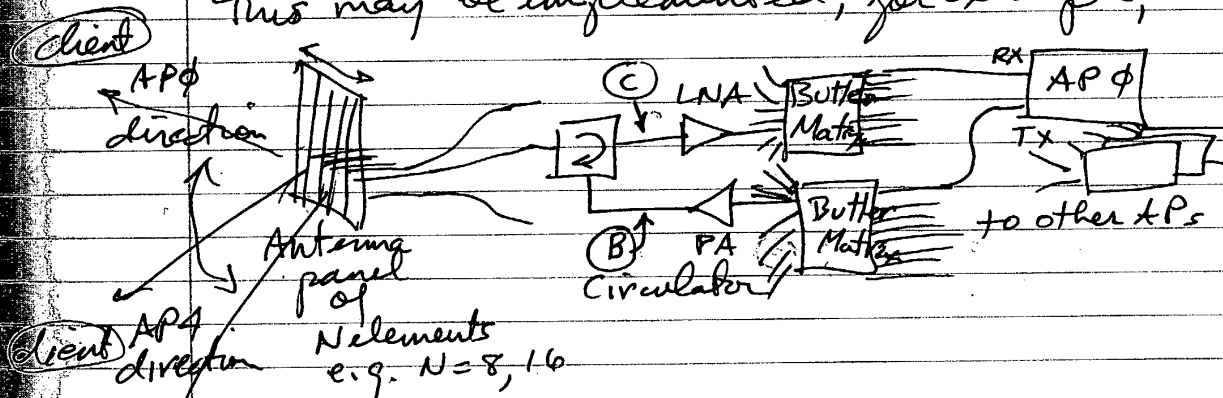 This may be implemented, for example,
client
APφ
direction
C
LNA
Butler
Matrix
RX
AP φ
TX
to other APs
B
PA
Circulator
Butler
Matrix
Antenna
panel
of
N elements
e.g. N=8, 16
client
AP4
direction